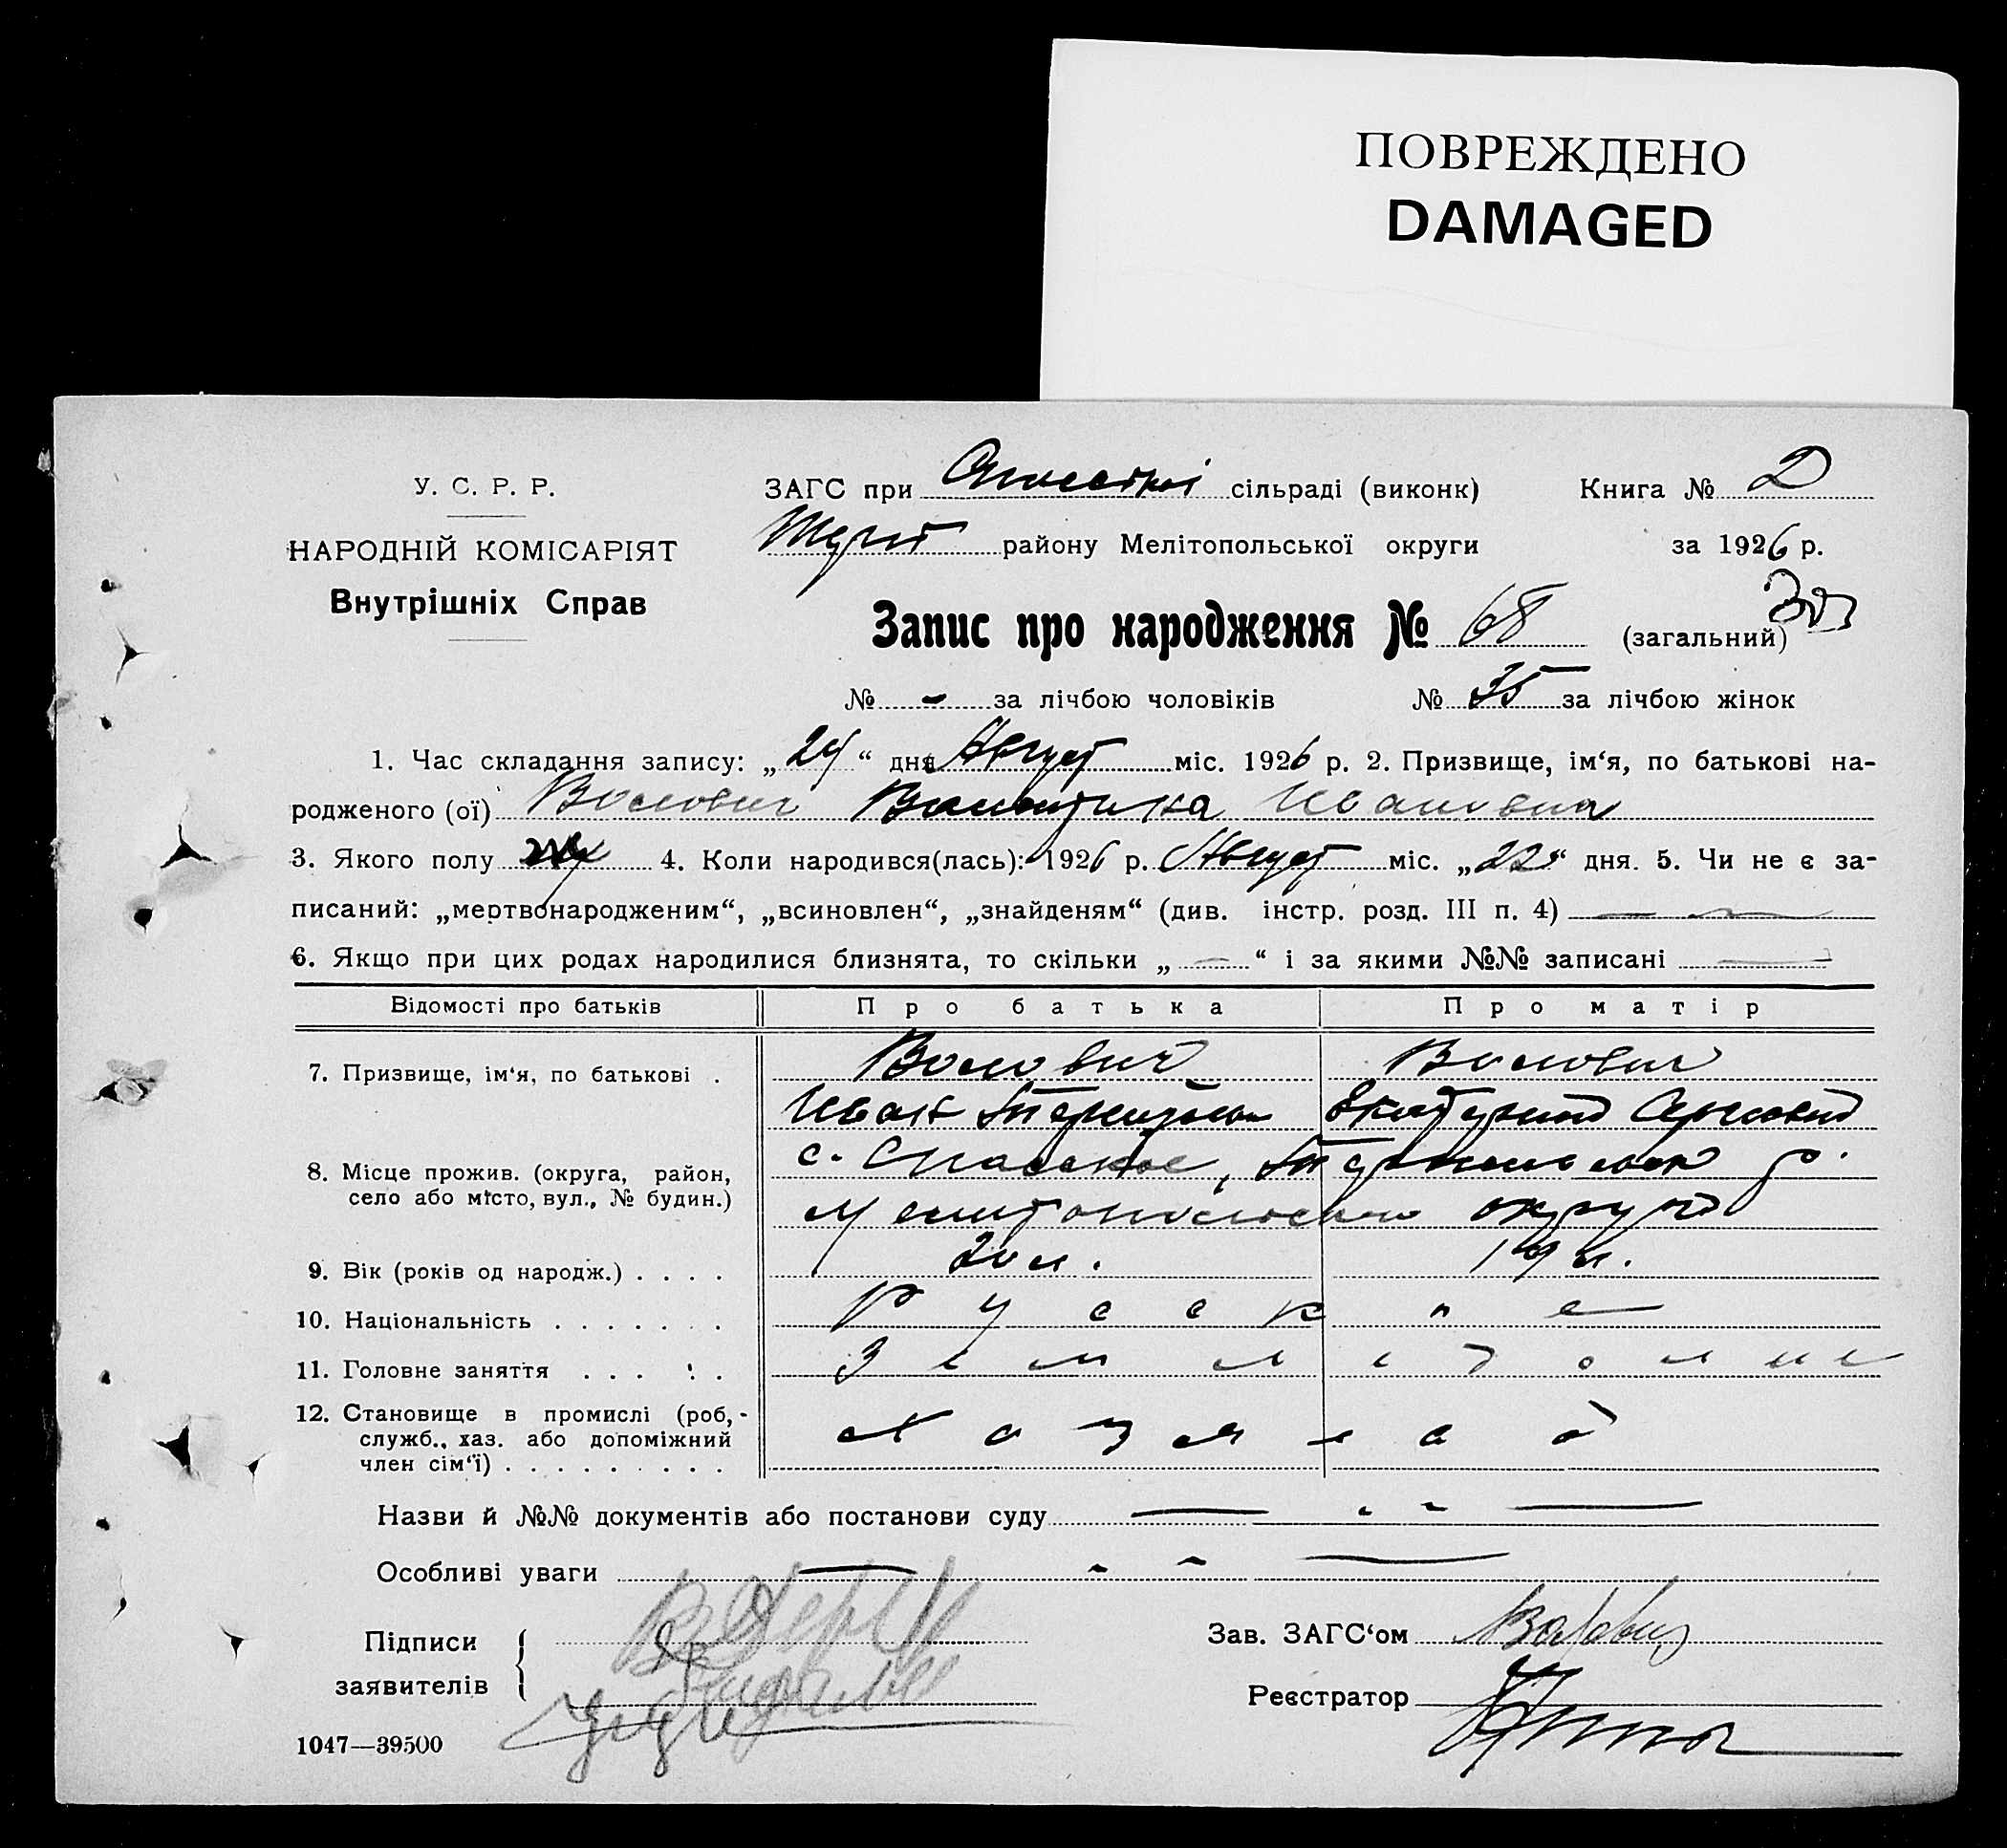 ПОВРЕЖДЕНО
DAMAGED
У. С. Р. Р.
НАРОДНІЙ КОМІСАРІЯТ
Внутрішніх Справ
ЗАГС при сільраді (виконк) Книга № 2
району Мелітопольської округи за 1926 р.
Запис про народження № 68 (загальний)
№ - за лічбою чоловіків № 35 за лічбою жінок
1. Час складання запису: „24“ дня Август міс. 1926 р. 2. Призвище, ім‘я, по батькові на-
родженого (ої) Волович Валентина Ивановна
3. Якого полу 4. Коли народився(лась): 1926 р. Август міс. „22“ дня. 5. Чи не є за-
писаний: „мертвонародженим“, „всиновлен“, „знайденям“ (див. інстр. розд. III п. 4) —
6. Якщо при цих родах народилися близнята, то скільки „ — “ і за якими №№ записані —
Відомості про батьків Про батька Про матір
7. Призвище, ім‘я, по батькові . Волович Волович
Иван Екатерина
8. Місце прожив. (округа, район,
село або місто, вул., № будин.)
с. Спасское, р.
Мелитопольского округа
9. Вік (років од народж.) . . . . 20 л. 19 л.
10. Національність . . . . . . . Русские
11. Головне заняття . . . . . Земледелие
12. Становище в промислі (роб,-
служб., хаз. або допоміжний
член сім‘ї) . . . . . . . . .
Назви й №№ документів або постанови суду — " —
Особливі уваги — " —
Підписи
заявителів
Зав. ЗАГС‘ом
Реєстратор
1047—39500